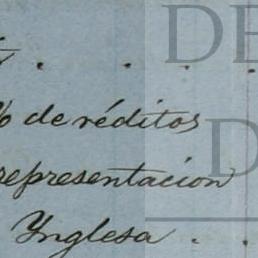 % de réditos
representacion
Ynglesa . .
DE
D